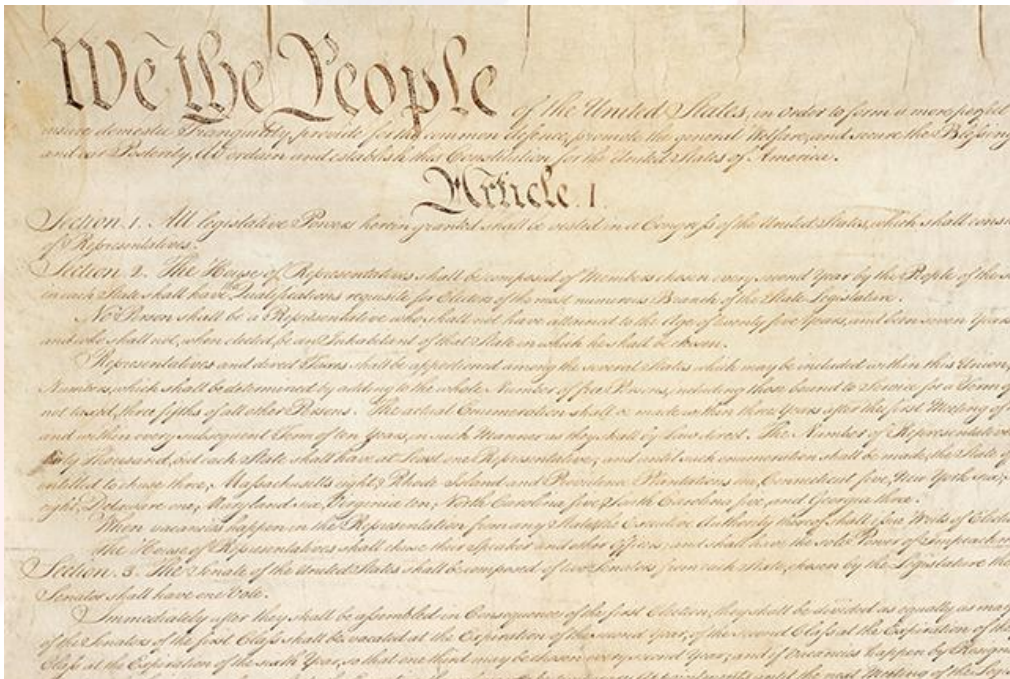 We the People of the United States, in Order to form a more perfect
insure domestic Tranquility, provide for the common defence, promote the general Welfare, and secure the Blessing
and our Posterity, do ordain and establish this Constitution for the United States of America.
Article. I.
Section. 1. All legislative Powers herein granted shall be vested in a Congress of the United States, which shall cons
of Representatives.
Section. 2. The House of Representatives shall be composed of Members chosen every second Year by the People of the
in each State shall have the Qualifications requisite for Electors of the most numerous Branch of the State Legislature.
No Person shall be a Representative who shall not have attained to the Age of twenty five Years, and been seven Years
and who shall not, when elected, be an Inhabitant of that State in which he shall be chosen.
Representatives and direct Taxes shall be apportioned among the several States which may be included within this Union,
Numbers, which shall be determined by adding to the whole Number of free Persons, including those bound to Service for a Term of
not taxed, three fifths of all other Persons. The actual Enumeration shall be made within three Years after the first Meeting of
and within every subsequent Term of ten Years, in such Manner as they shall by Law direct. The Number of Representatives
thirty Thousand, but each State shall have at Least one Representative; and until such enumeration shall be made, the State of
entitled to chuse three, Massachusetts eight, Rhode Island and Providence Plantations one, Connecticut five, New York six,
eight, Delaware one, Maryland six, Virginia ten, North Carolina five, South Carolina five, and Georgia three.
When vacancies happen in the Representation from any State, the Executive Authority thereof shall issue Writs of Electio
The House of Representatives shall chuse their Speaker and other Officers; and shall have the sole Power of Impeachm
Section. 3. The Senate of the United States shall be composed of two Senators from each State, chosen by the Legislature the
Senator shall have one Vote.
Immediately after they shall be assembled in Consequence of the first Election, they shall be divided as equally as may
of the Senators of the first Class shall be vacated at the Expiration of the second Year, of the second Class at the Expiration of the
Class at the Expiration of the sixth Year, so that one third may be chosen every second Year; and if Vacancies happen by Resign
until the next Meeting of the Legis